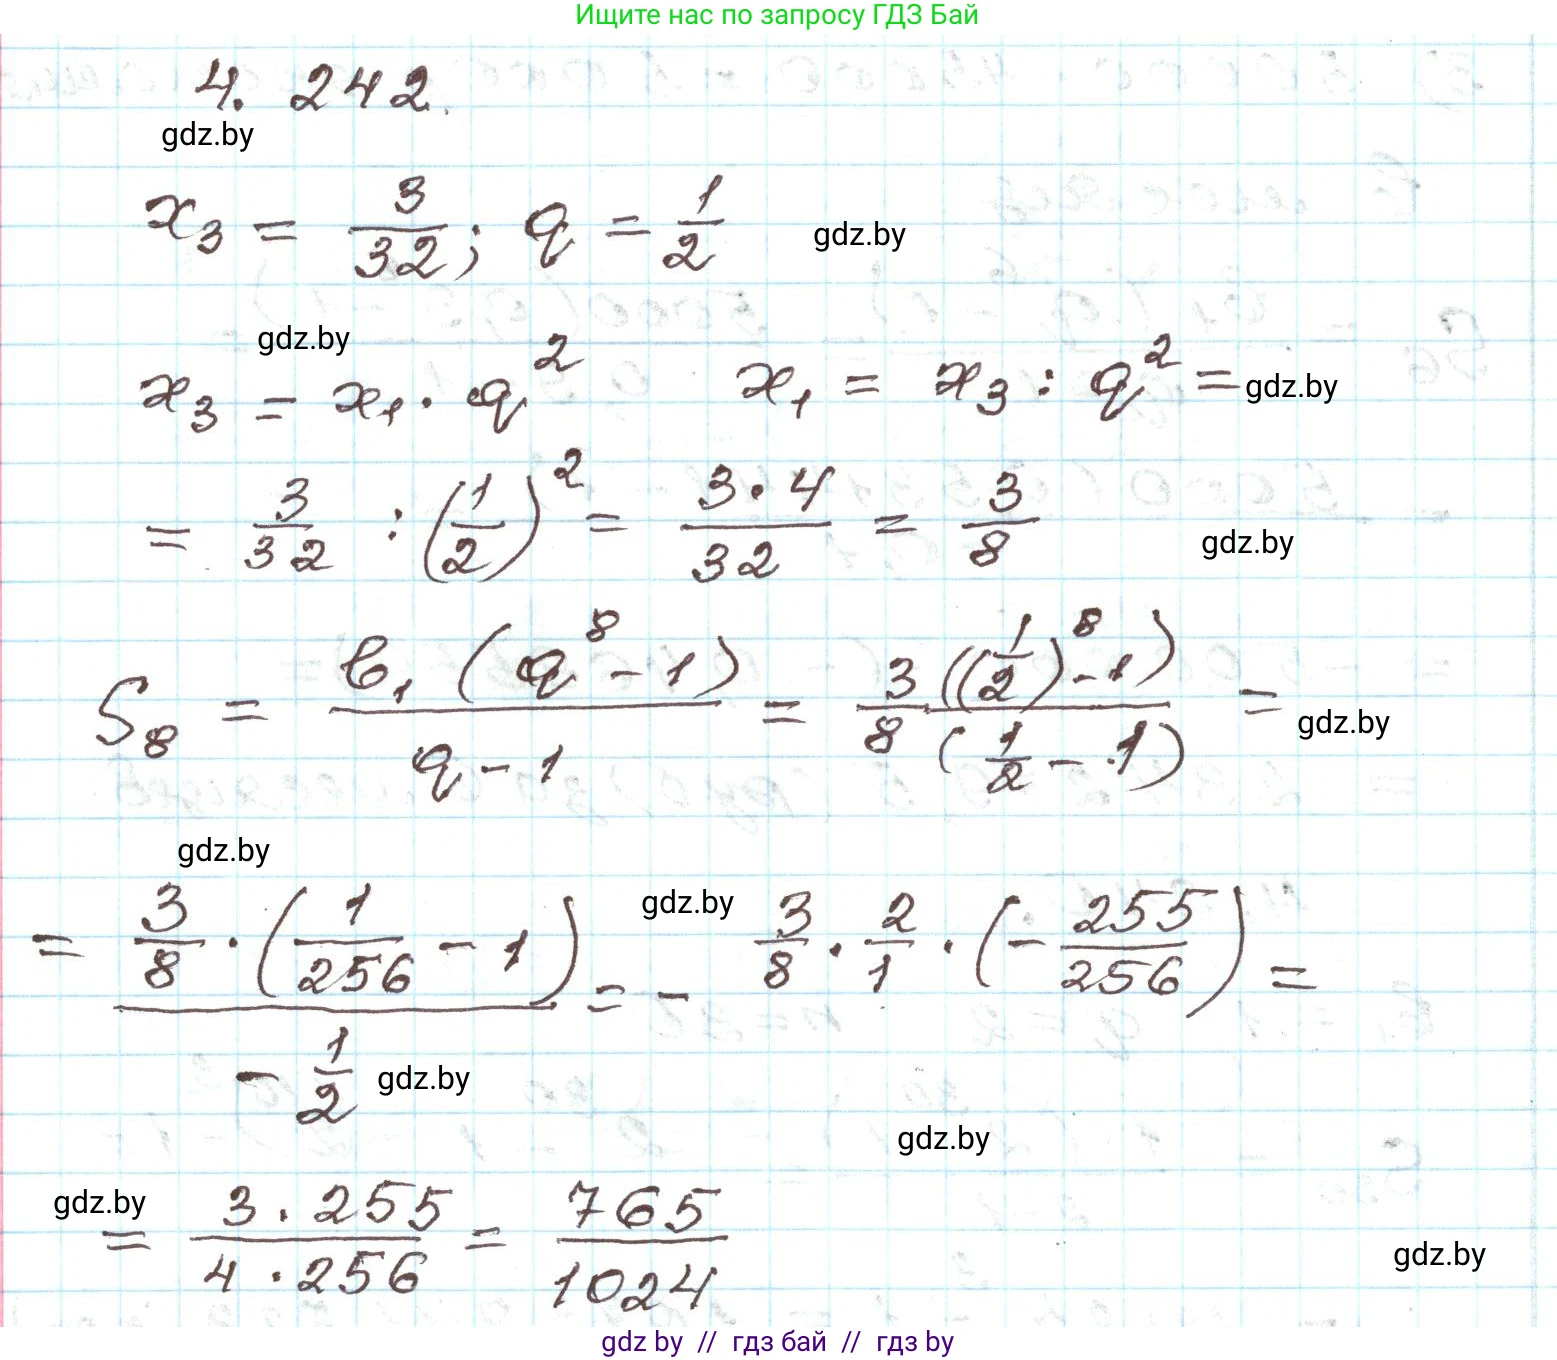 Ищите нас по запросу ГДЗ Бай
4. 242.
gdz.by
x₃ = 3/32; q = 1/2 gdz.by
gdz.by
x₃ = x₁ · q² x₁ = x₃ : q² = gdz.by
= 3/32 : (1/2)² = 3·4/32 = 3/8 gdz.by
S₈ = b₁ (q⁸ - 1)/(q - 1) = 3/8 ((1/2)⁸ - 1)/(1/2 - 1) = gdz.by
gdz.by gdz.by
= 3/8 · (1/256 - 1)/(- 1/2) = - 3/8 · 2/1 · (- 255/256) =
gdz.by
gdz.by
gdz.by
= 3 · 255/4 · 256 = 765/1024 gdz.by
gdz by // гдз бай // гдз by